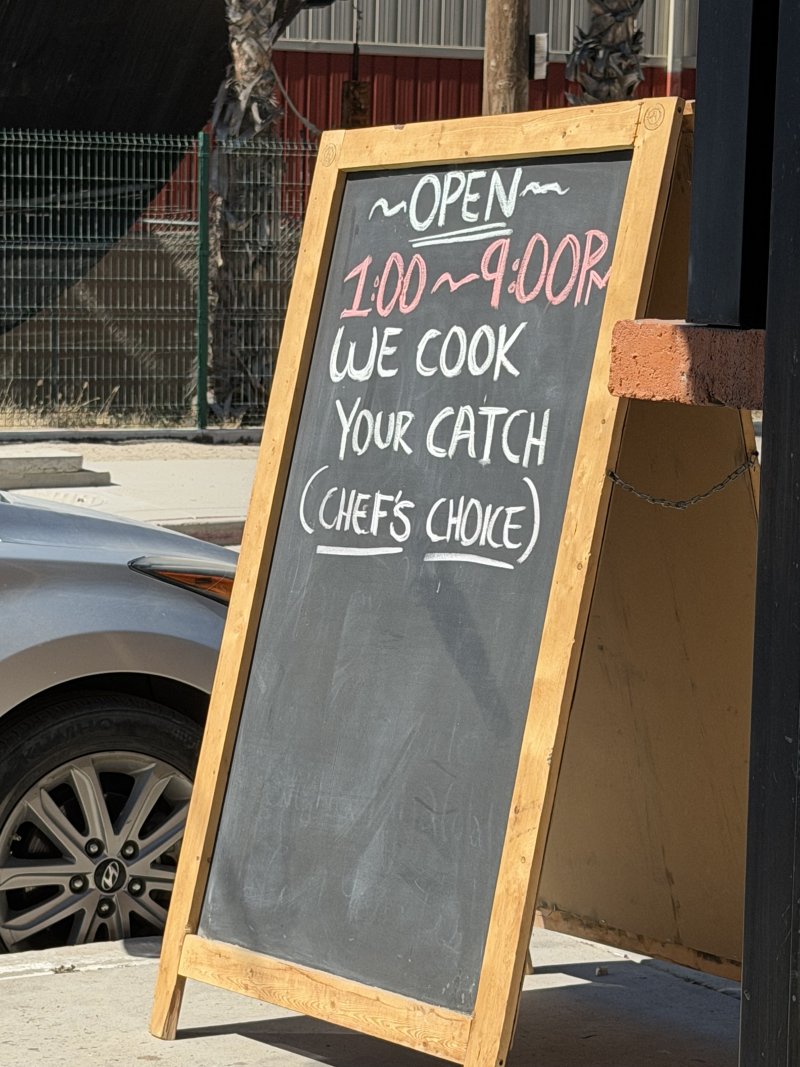 ~OPEN~
1:00~9:00PM
WE COOK
YOUR CATCH
(CHEF'S CHOICE)